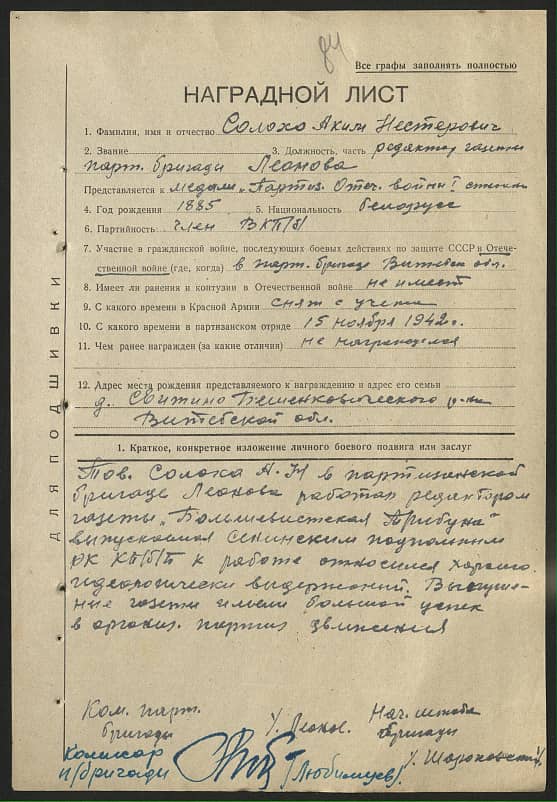 84
Все графы заполнять полностью
НАГРАДНОЙ ЛИСТ
1. Фамилия, имя и отчество Солохо Аким Нестерович
2. Звание 3. Должность, часть редактор газеты
парт. бригады Леонова
Представляется к медали „Партиз. Отеч. войны" I степени
4. Год рождения 1885 5. Национальность белорусс
6. Партийность член ВКП/б/
7. Участие в гражданской войне, последующих боевых действиях по защите СССР и Отече-
ственной войне (где, когда) в парт. бригаде Витебск обл.
8. Имеет ли ранения и контузии в Отечественной войне не имеет
9. С какого времени в Красной Армии снят с учета
10. С какого времени в партизанском отряде 15 ноября 1942 г.
11. Чем ранее награжден (за какие отличия) не награждался
12. Адрес места рождения представляемого к награждению и адрес его семьи
д. Свитино Бешенковического р-на
Витебской обл.
ДЛЯ ПОДШИВКИ
1. Краткое, конкретное изложение личного боевого подвига или заслуг
Тов. Солоха А. Н в партизанской
бригаде Леонова работал редактором
газеты „Большевистская Трибуна"
выпускаемая Сенинским подпольным
РК КП/б/Б к работе относился хорошо
идеологически выдержанный. Выпущен-
ные газеты имели большой успех
в организ. партиз движения
Ком. парт. Нач. штаба
бригады /Леонов. бригады
Комисар
п/бригады (Любимцев). /Шароновский/